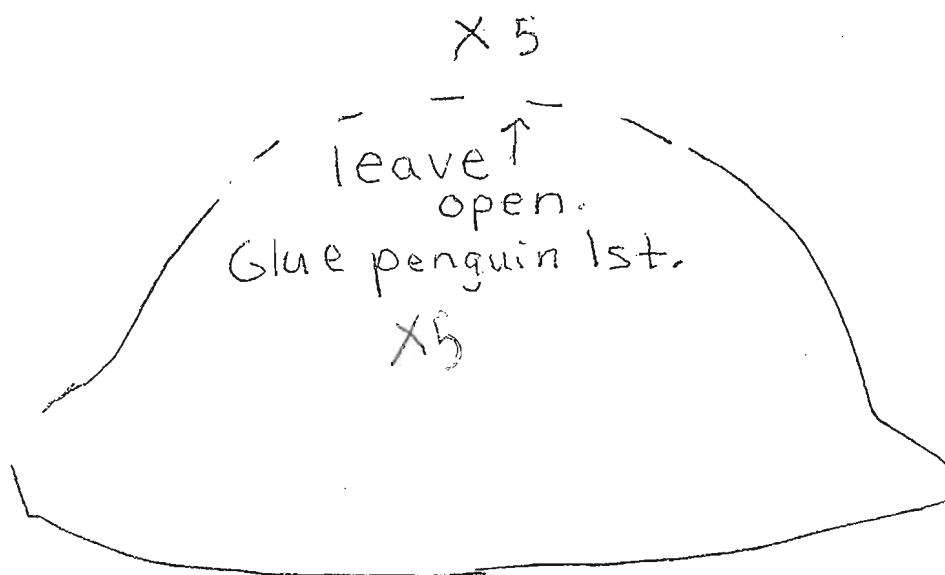 X 5
leave ↑
open.
Glue penguin 1st.
X5